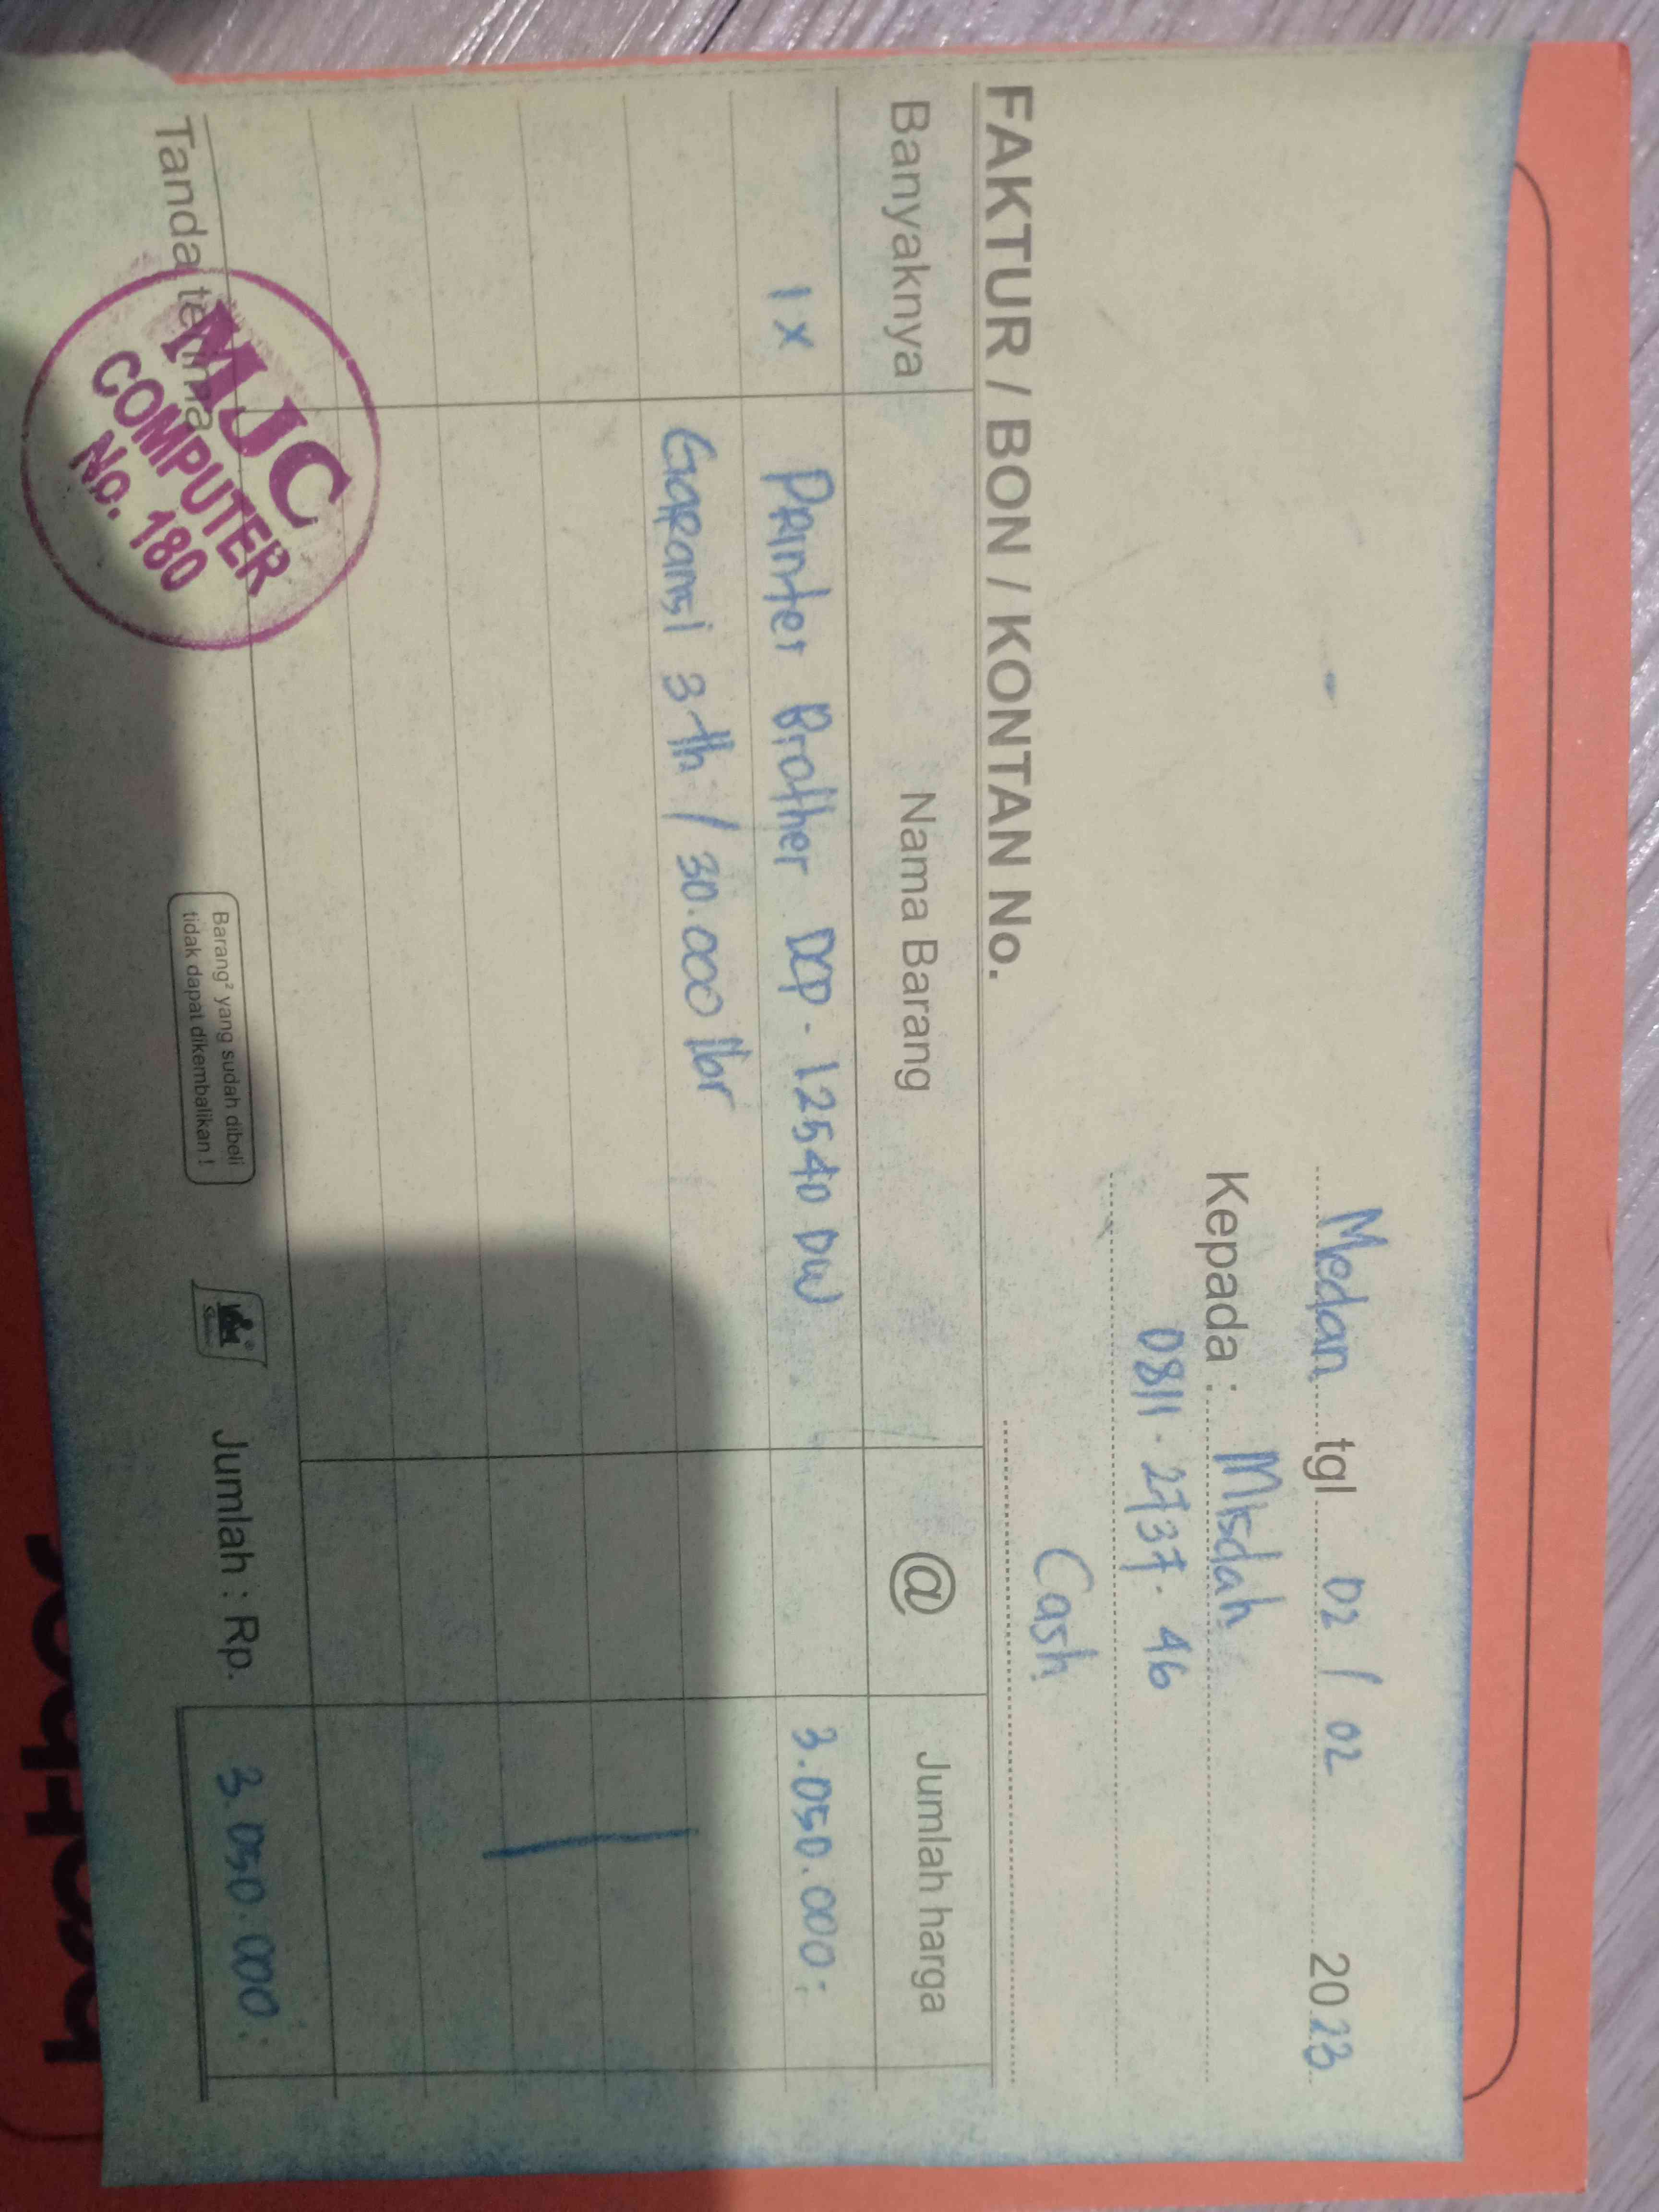 Medan tgl 02 / 02 2023
Kepada : Misdah
0811 . 2737 . 46
Cash
FAKTUR / BON / KONTAN No.
Banyaknya Nama Barang @ Jumlah harga
1x Printer Brother DCP - L2540 DW 3.050.000,-
Garansi 3 th / 30.000 lbr
Tanda terima
Barang² yang sudah dibeli
tidak dapat dikembalikan !
Jumlah : Rp. 3.050.000,-
MJC
COMPUTER
No. 180